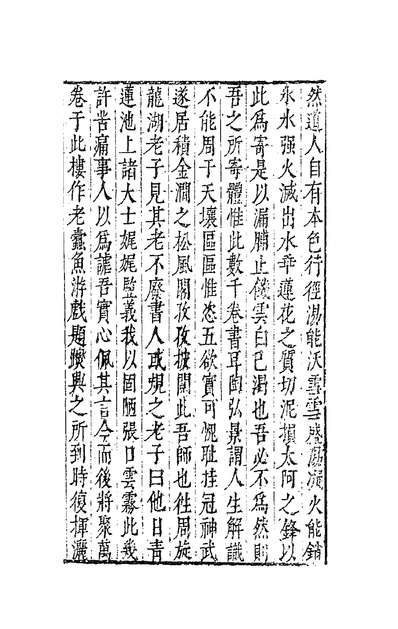 然道人自有本色行徑湯能沃雪雪盛湯凝火能銷
氷水强火滅出水乖蓮花之質切泥損太阿之鋒以
此爲寄是以漏脯止饑雲白已渴也吾必不爲然則
吾之所寄體惟此數千卷書耳陶弘景謂人生解識
不能周于天壤區區惟恣五欲實可愧耻挂冠神武
遂居積金澗之松風閣孜孜披閱此吾師也徃周旋
龍湖老子見其老不廢書人或規之老子曰他日青
蓮池上諸大士娓娓監義我以固陋張口雲霧此幾
許苦痛事人以爲謔吾實心佩其言今而後將聚萬
卷于此樓作老蠹魚游戲題
興之所到時復揮灑